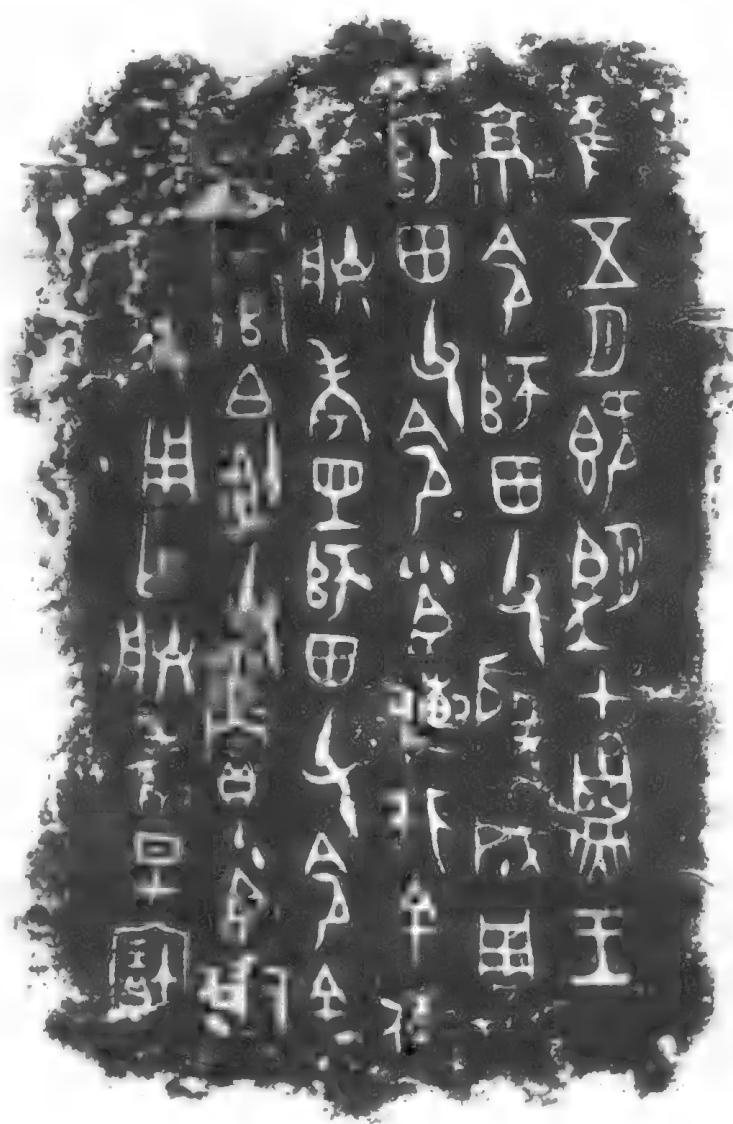 隹五月既望甲子王
京令師田父殷成周
師田父令小臣傳非余傳
朕考師田父令余
官白父賞小臣傳
用乍朕考日甲寶